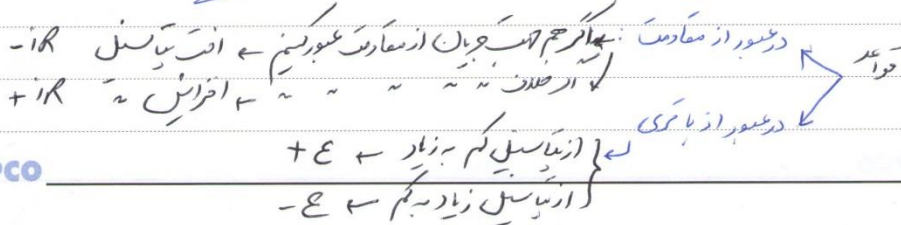 قواعد
در عبور از مقاومت : اگر هم جهت جریان از مقاومت عبور کنیم ← افت پتانسیل -iR
اگر خلاف " " " " " ← افزایش " +iR
در عبور از باتری
از پتانسیل کم به زیاد ← +ε
از پتانسیل زیاد به کم ← -ε
CO